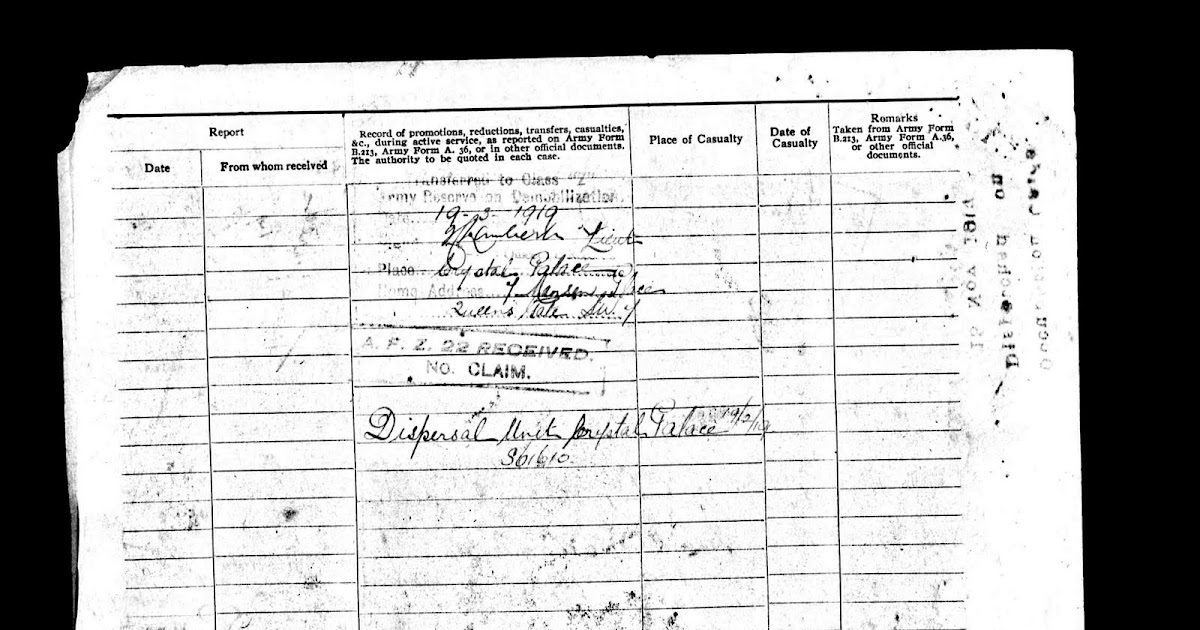 Report
Date
From whom received
Record of promotions, reductions, transfers, casualties,
&c., during active service, as reported on Army Form
B.213, Army Form A. 36, or in other official documents.
The authority to be quoted in each case.
Place of Casualty
Date of
Casualty
Remarks
Taken from Army Form
B.213, Army Form A.36,
or other official
documents.
Transferred to Class "Z"
Army Reserve on Demobilization.
19-3-1919
Lieut
Place Crystal Palace
Home Address 7
Queens Gate SW 7
A. F. Z. 22 RECEIVED.
NO. CLAIM.
Dispersal Unit Crystal Palace 19/2/19